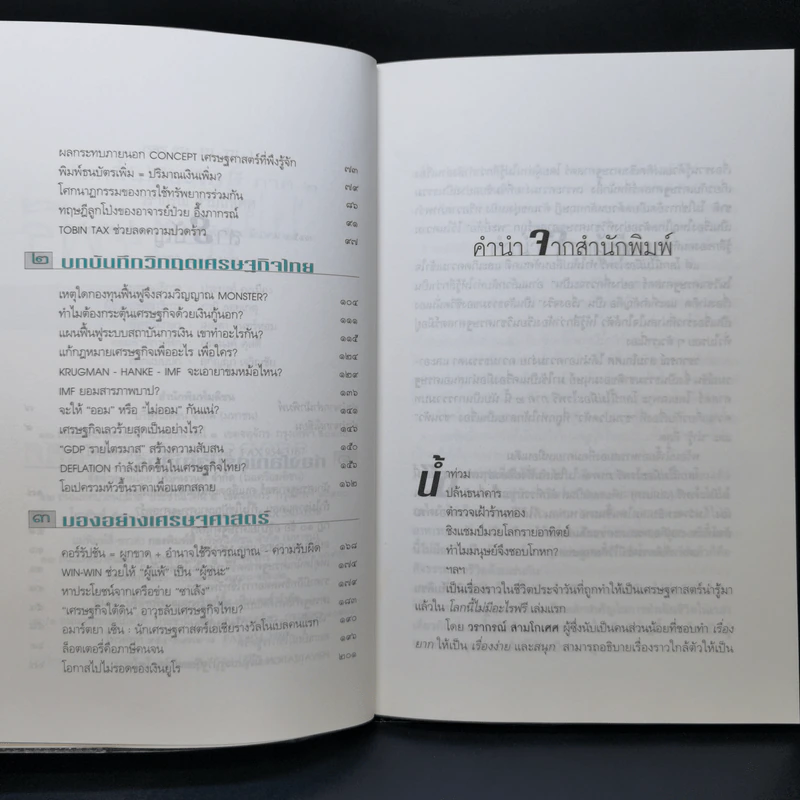 ผลกระทบภายนอก CONCEPT เศรษฐศาสตร์ที่พึงรู้จัก ๗๓
พิมพ์ธนบัตรเพิ่ม = ปริมาณเงินเพิ่ม? ๗๙
โศกนาฏกรรมของการใช้ทรัพยากรร่วมกัน ๘๖
ทฤษฎีลูกโป่งของอาจารย์ป๋วย อึ๊งภากรณ์ ๙๑
TOBIN TAX ช่วยลดความปวดร้าว ๙๗
๒ บทบันทึกวิกฤตเศรษฐกิจไทย
เหตุใดกองทุนฟื้นฟูจึงสวมวิญญาณ MONSTER? ๑๐๔
ทำไมต้องกระตุ้นเศรษฐกิจด้วยเงินกู้นอก? ๑๑๑
แผนฟื้นฟูระบบสถาบันการเงิน เขาทำอะไรกัน? ๑๑๕
แก้กฎหมายเศรษฐกิจเพื่ออะไร เพื่อใคร? ๑๒๔
KRUGMAN - HANKE - IMF จะเอายาขมหม้อไหน? ๑๒๙
IMF ยอมสารภาพบาป? ๑๓๖
จะให้ "ออม" หรือ "ไม่ออม" กันแน่? ๑๔๑
เศรษฐกิจเลวร้ายสุดเป็นอย่างไร? ๑๔๖
"GDP รายไตรมาส" สร้างความสับสน ๑๕๐
DEFLATION กำลังเกิดขึ้นในเศรษฐกิจไทย? ๑๕๖
โอเปครวมหัวขึ้นราคาเพื่อแตกสลาย ๑๖๒
๓ มองอย่างเศรษฐศาสตร์
คอร์รัปชัน = ผูกขาด + อำนาจใช้วิจารณญาณ - ความรับผิด ๑๖๘
WIN-WIN ช่วยให้ "ผู้แพ้" เป็น "ผู้ชนะ" ๑๗๔
หาประโยชน์จากเครือข่าย "ซาเล้ง" ๑๗๙
"เศรษฐกิจใต้ดิน" อาวุธลับเศรษฐกิจไทย? ๑๘๓
อมาร์ตยา เซ็น : นักเศรษฐศาสตร์เอเชียรางวัลโนเบลคนแรก ๑๙๐
ล็อตเตอรี่คือภาษีคนจน ๑๙๖
โอกาสไปไม่รอดของเงินยูโร ๒๐๑
คำนำ จากสำนักพิมพ์
น้ำท่วม
ปล้นธนาคาร
ตำรวจเฝ้าร้านทอง
ชิงแชมป์มวยโลกรายอาทิตย์
ทำไมมนุษย์จึงชอบโกหก?
ฯลฯ
เป็นเรื่องราวในชีวิตประจำวันที่ถูกทำให้เป็นเศรษฐศาสตร์น่ารู้มา
แล้วใน โลกนี้ไม่มีอะไรฟรี เล่มแรก
โดย วรากรณ์ สามโกเศศ ผู้ซึ่งนับเป็นคนส่วนน้อยที่ชอบทำ เรื่อง
ยาก ให้เป็น เรื่องง่าย และสนุก สามารถอธิบายเรื่องราวใกล้ตัวให้เป็น